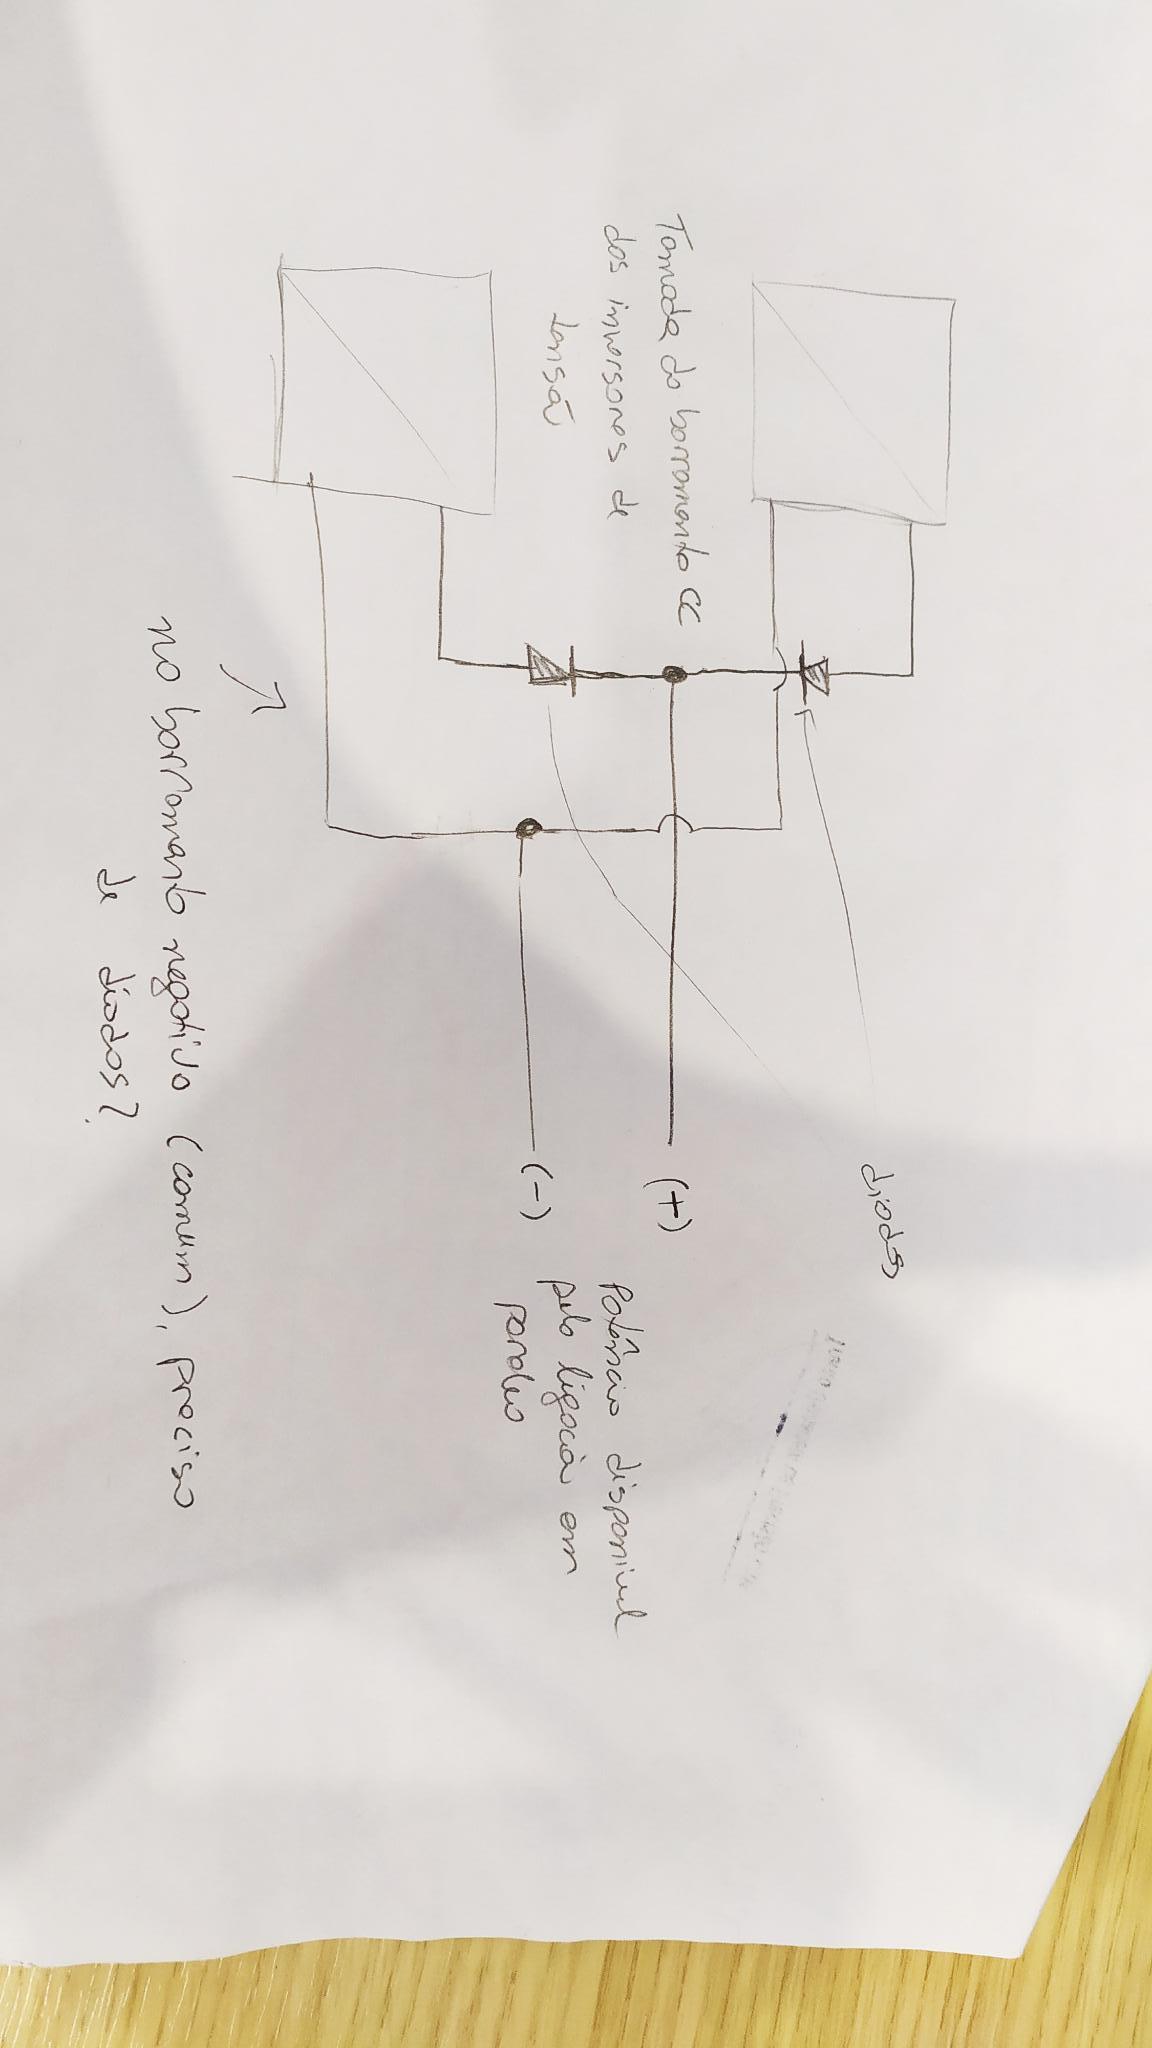 diodos
Tomada do barramento CC
dos inversores de
tensão
(+)
(-)
Potência disponível
pela ligação em
paralelo
no barramento negativo (comum), preciso
de diodos?